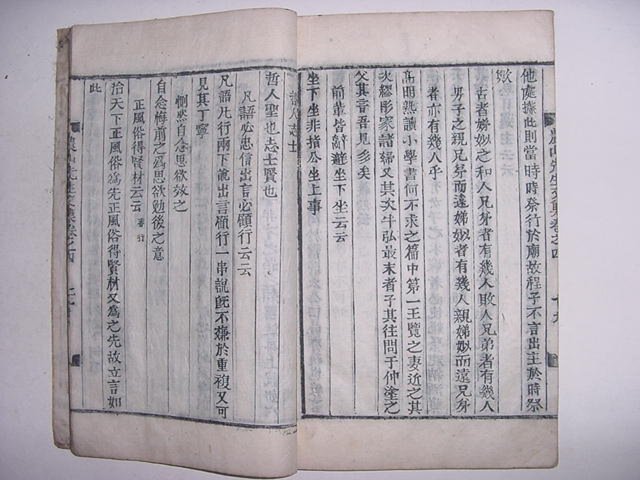 他處據此則當時時祭行於廟故程子不言出主於時祭
歟
古者娣姒之和人兄弟者有幾人敗人兄弟者有幾人
男子之親兄弟而遠娣姒者有幾人親娣姒而遠兄弟
者亦有幾人乎
高明熟讀小學書何不求之篇中第一王覽之妻近之其
次繆彤家諸婦又其次牛弘最末者子其往問于仲塗之
父其言吾見多矣
坐下坐非指公坐上事
前輩皆辭避坐下坐云云
農山先生文集卷之四
十九
哲人志士
哲人聖也志士賢也
凡語必忠信出言必顧行云云
凡語凡行兩下說出言顧行一串說旣不嫌於重複又可
見其丁寧
惻然自念思欲效之
自念悔前之爲思欲勉後之意
正風俗得賢材云云 著行
治天下正風俗爲先正風俗得賢材又爲之先故立言如
此
農山先生文集卷之四
二十